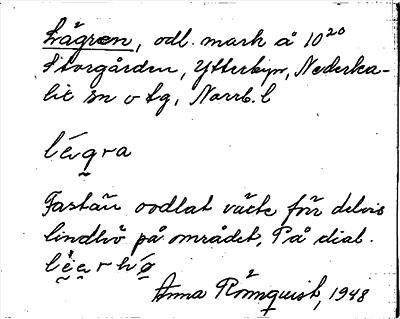 Lågren, odl. mark å 10²⁰
Storgården, Ytterbyn, Nederka-
lix sn o tg, Norrb. l
lé̄gra
Fastän oodlat växte förr delvis
lindhö på området, På dial.
Anna Rönnquist, 1948